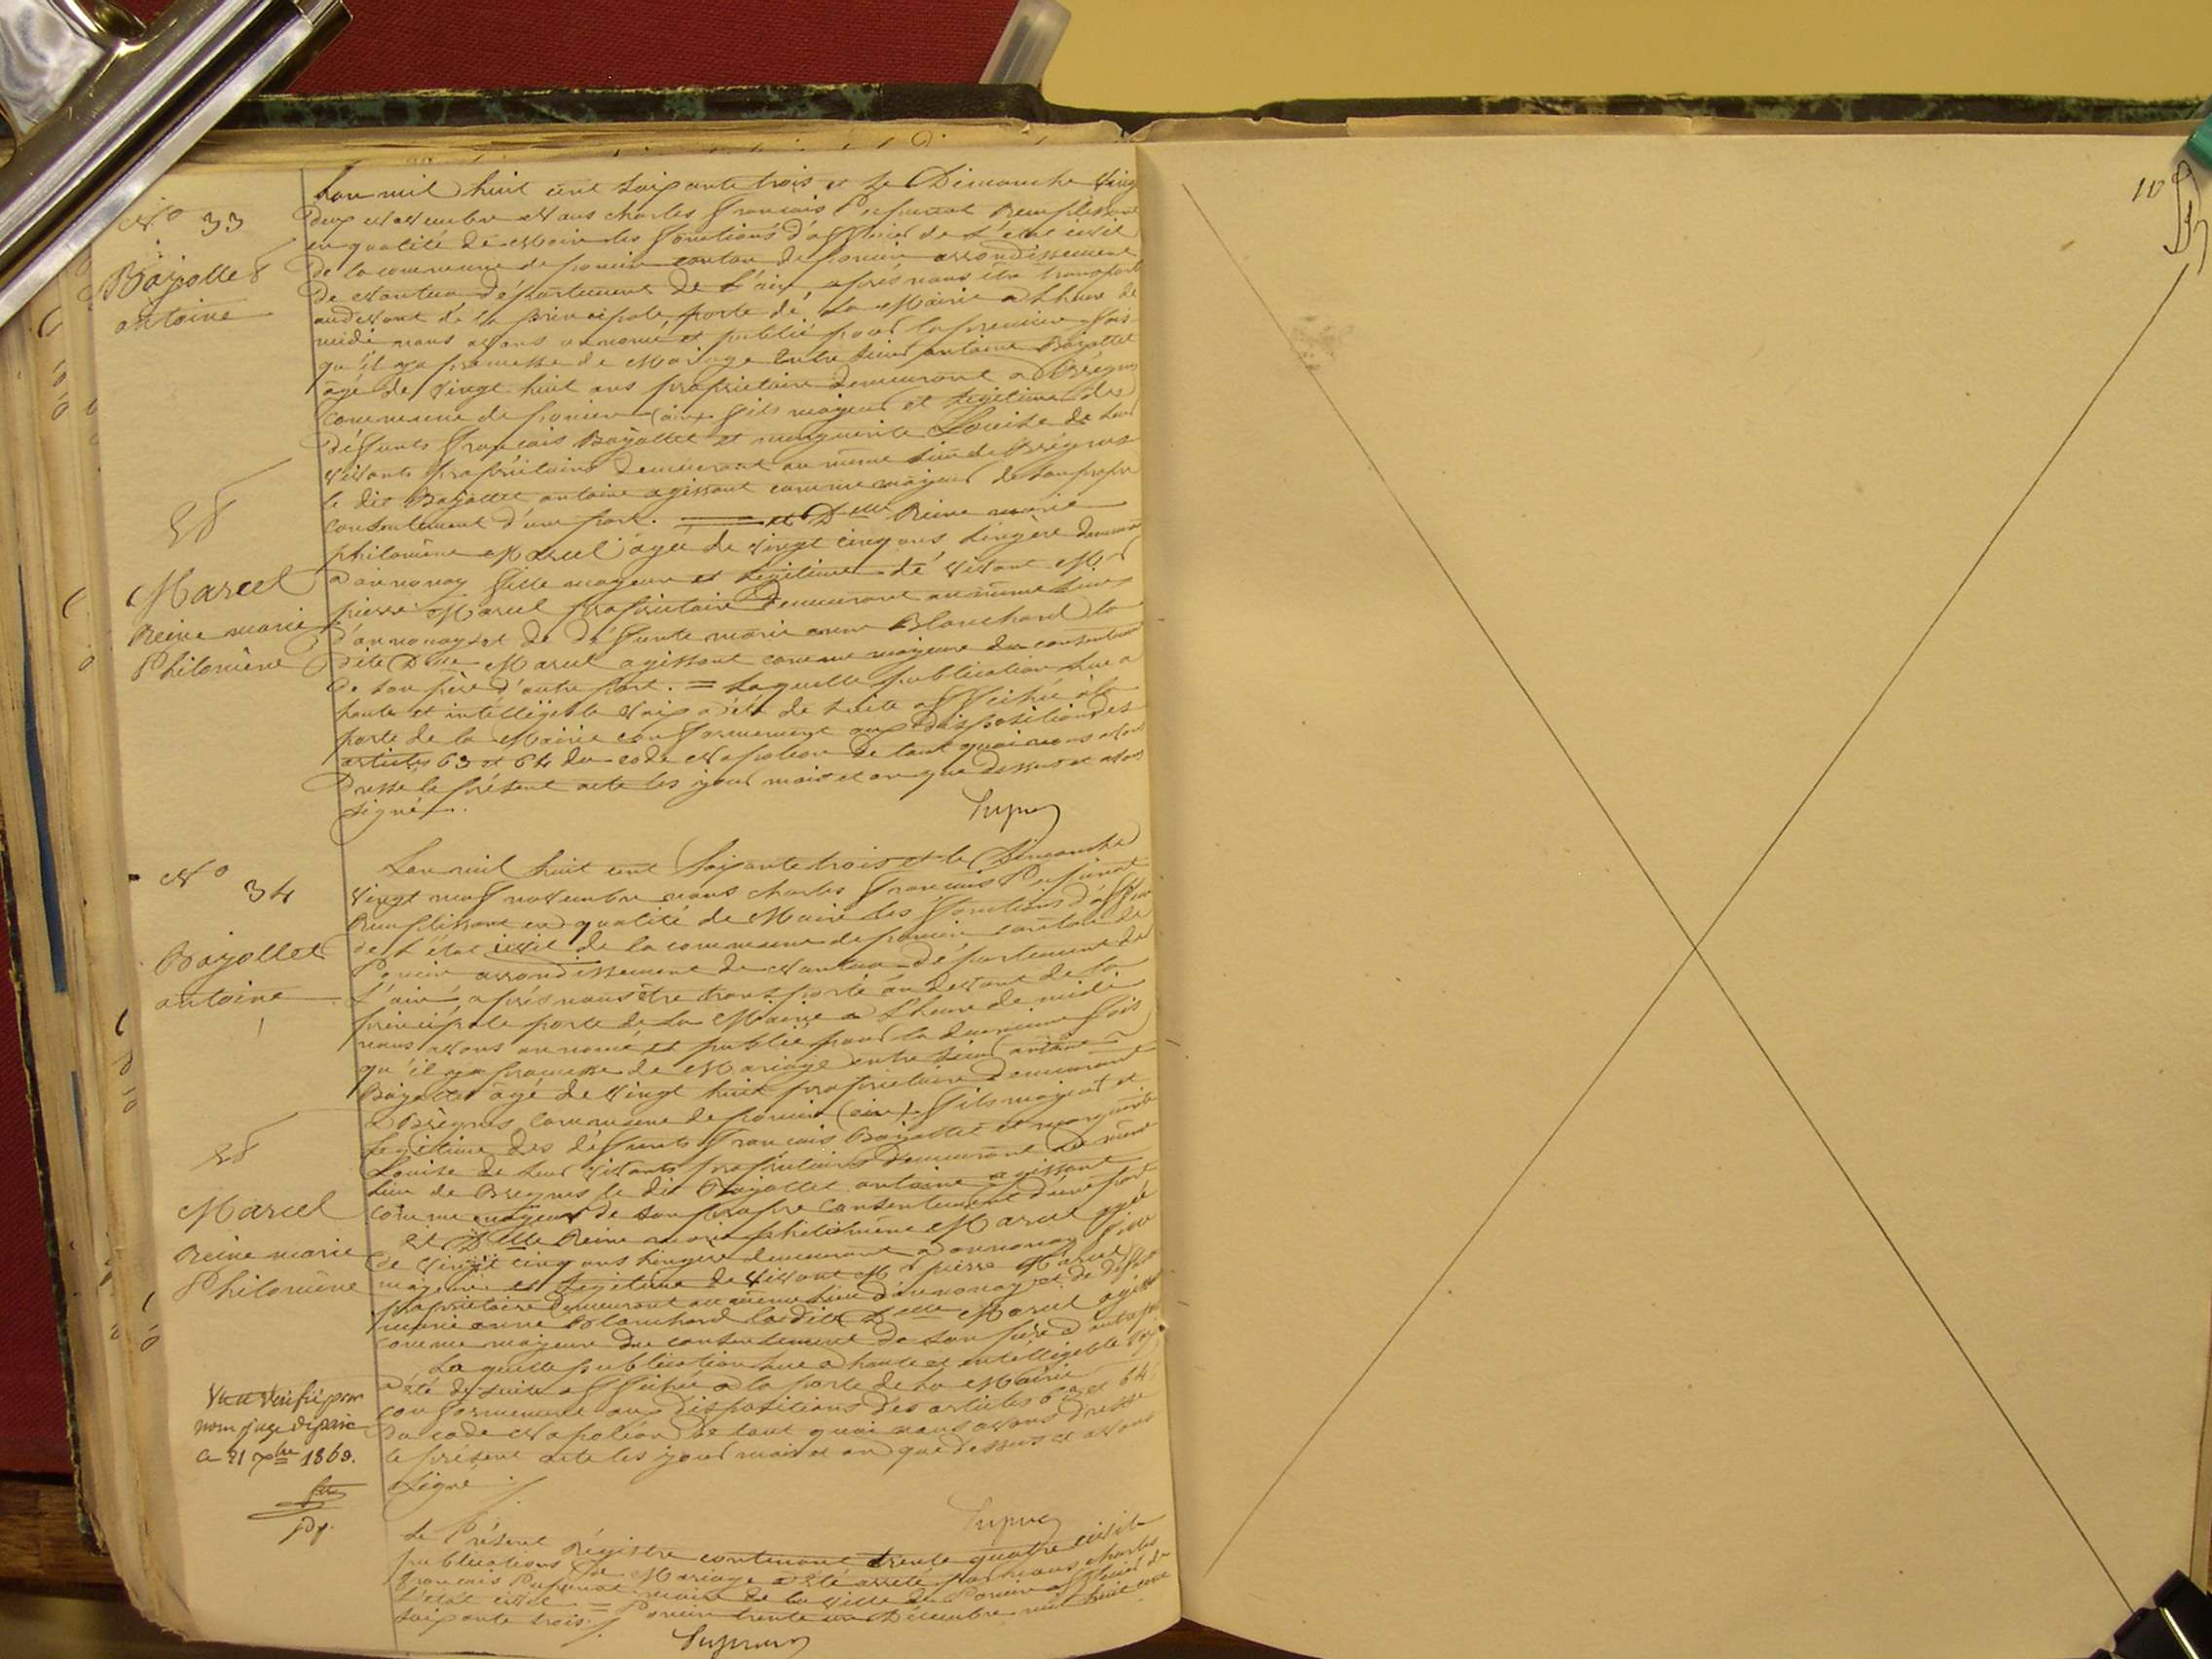 N° 33
Bajollet
antoine
Et
Marcel
Reine marie
Philomène
L'an mil huit cent soixante trois et le Dimanche vingt
Deux novembre Nous charles français Remplissant
en qualité de Maire les fonctions d'officier de l'état civil
De la commune de poncin canton de poncin arrondissement
De Nantua département de L'ain après nous être transporté
au devant de la principale porte de la Mairie a L'heure de
midi nous avons annoncé et publié pour la première fois
qu'il y a promesse de Mariage Entre sieur antoine Bajollet
âgé de vingt huit ans propriétaire demeurant a Brégnes
Commune de poncin (ain) fils majeur et légitime des
défunts français Bajollet et marguerite Louise de leur
vivants propriétaires demeurant au même lieu de Brégnes
le dit Bajollet antoine agissant comme majeur de son propre
consentement d'une part. = et Delle Reine marie
philomène Marcel âgée de vingt cinq ans lingère demeurant
a annonay fille majeure et légitime de vivant Mr
pierre Marcel propriétaire Demeurant au même lieu
d'annonay et de défunte marie anne Blanchard la
dite Delle Marcel agissant comme majeure du consentement
de son père d'autre part. = Laquelle publication lue a
haute et intelligible voix a été de suite affichée à la
porte de la Mairie conformément aux dispositions des
articles 63 et 64 du code Napoléon De tout quoi nous avons
Dressé le présent acte les jour mois et an que dessus et avons
signé.
N° 34
Bajollet
antoine
Et
Marcel
Reine marie
Philomène
L'an mil huit cent soixante trois et le Dimanche
vingt neuf novembre nous charles français
Remplissant en qualité de Maire les fonctions d'officier
de l'état civil de la commune de poncin canton de
Poncin arrondissement de Nantua département de
L'ain après nous être transporté au devant de la
principale porte de la Mairie a L'heure de midi
nous avons annoncé et publié pour la deuxième fois
qu'il y a promesse de Mariage entre sieur antoine
Bajollet âgé de vingt huit propriétaire demeurant
a Brégnes commune de poncin (ain) fils majeur et
légitime des défunts français Bajollet et marguerite
Louise de leur vivants propriétaires demeurant au même
lieu de Brégnes le dit Bajollet antoine agissant
comme majeur de son propre consentement d'une part
et Delle Reine marie philomène Marcel âgée
de vingt cinq ans lingère demeurant a annonay fille
majeure et légitime de vivant Mr pierre Marcel
propriétaire demeurant au même lieu d'annonay et de défunte
marie anne Blanchard la dite Delle Marcel agissant
comme majeure du consentement de son père d'autre part
Laquelle publication lue a haute et intelligible voix
a été de suite affichée a la porte de la Mairie
conformément aux dispositions des articles 63 et 64
Du code Napoléon De tout quoi nous avons dressé
le présent acte les jour mois et an que dessus et avons
signé
Vu et Vérifié par
nous juge de paix
a 21 7bre 1869.
Le Présent Régistre contenant trente quatre
publications de Mariage a été arrêté par nous charles
français maire de la ville de Poncin officier de
l'état civil = Poncin trente un Décembre mil huit cent
soixante trois